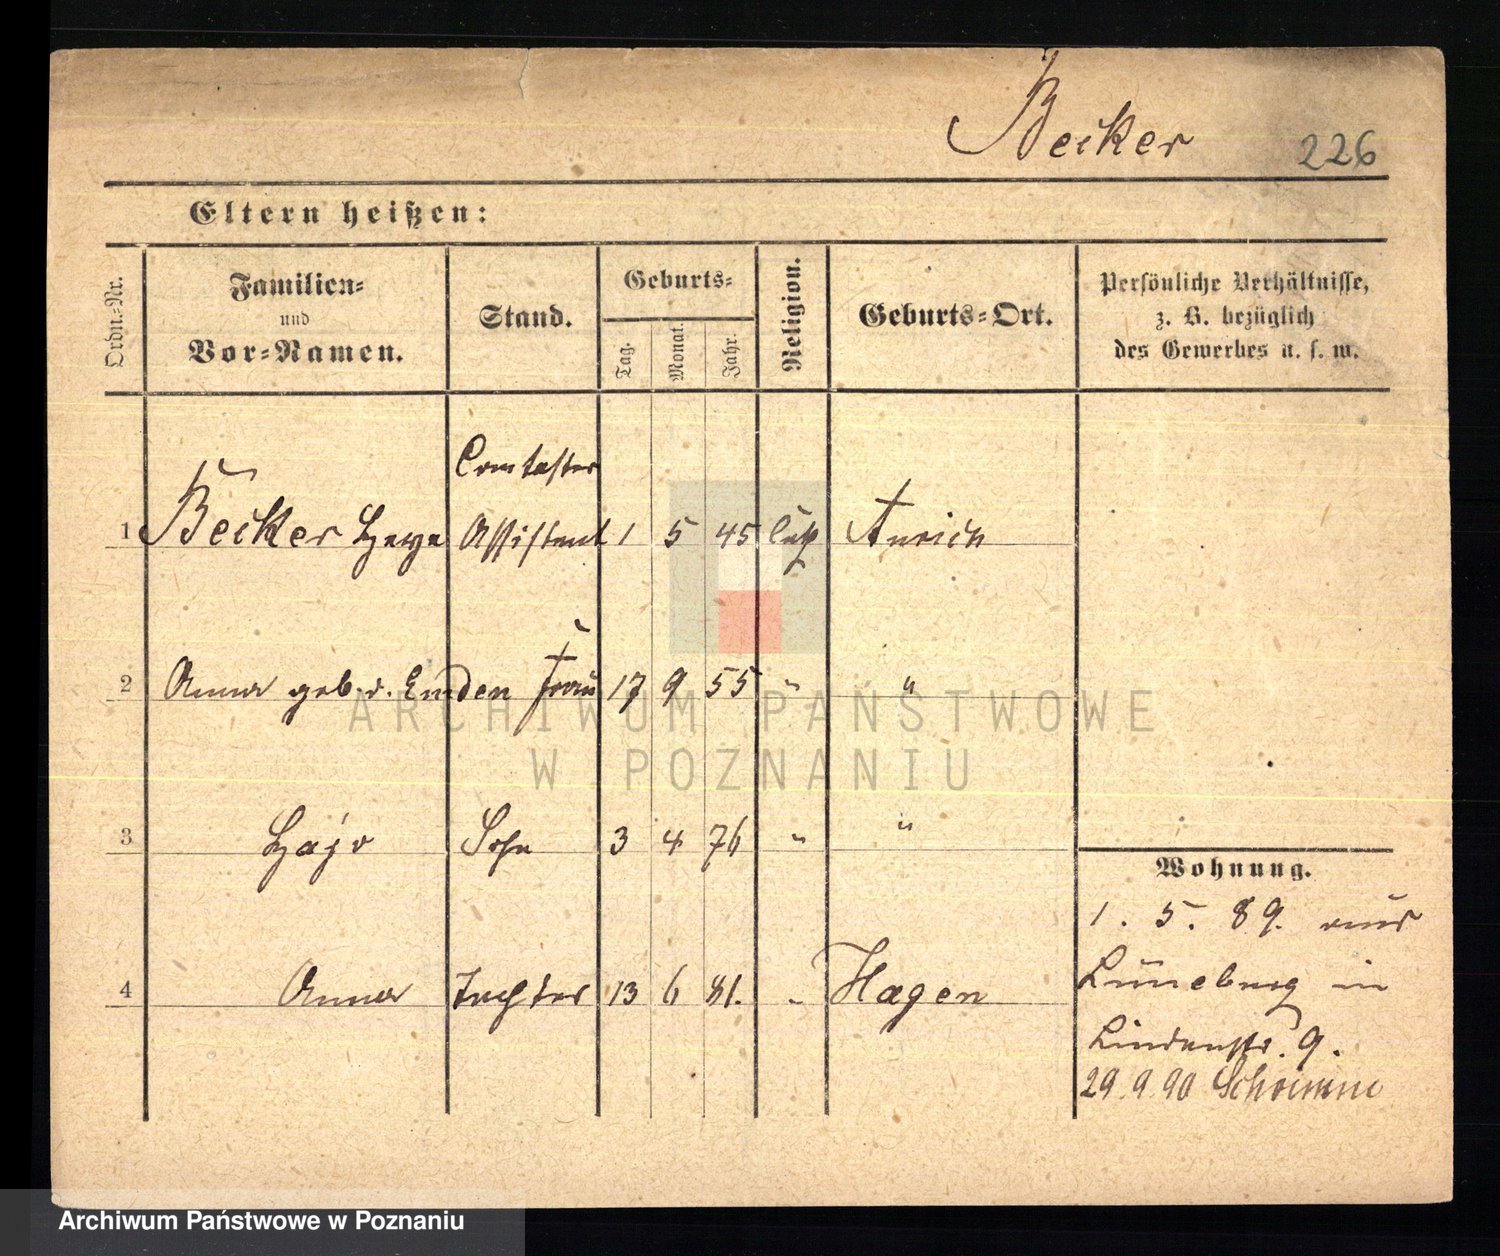 Becker 226
Eltern heißen:
Ordn.-Nr.
Familien-
und
Vor-Namen.
Stand.
Geburts-
Tag.
Monat.
Jahr.
Religion.
Geburts-Ort.
Persönliche Verhältnisse,
z. B. bezüglich
des Gewerbes u. s. w.
1 Becker Heye Assistent 1 5 45 Aurich
2 Anna geb. v. Emden Frau 17 9 55 " "
3 Hajo Sohn 3 4 76 " "
4 Anna Tochter 13 6 81. " Hagen
Wohnung.
1. 5. 89. aus
Lüneburg in
Lindenstr. 9.
29. 9. 90
ARCHIWUM PAŃSTWOWE
W POZNANIU
Archiwum Państwowe w Poznaniu